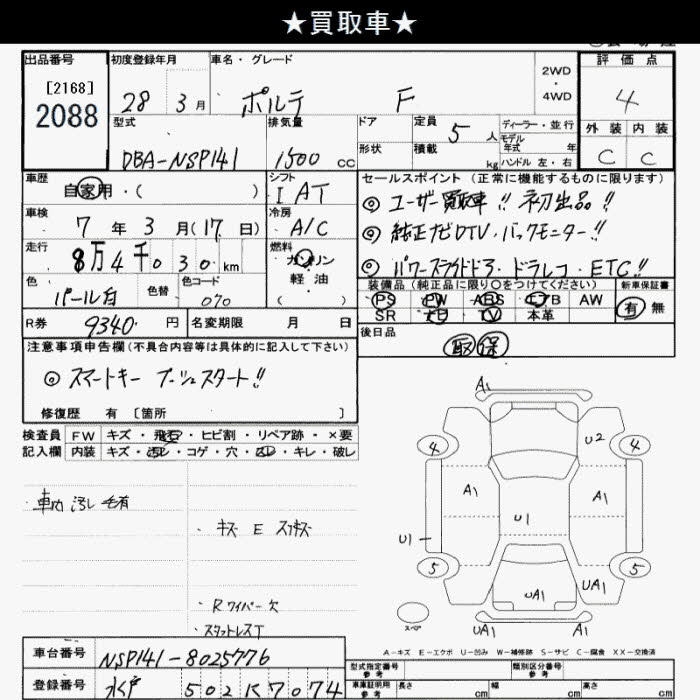 ★買取車★
出品番号 初度登録年月 車名・グレード 2WD・4WD 評価点
[2168]
2088
28 3月 ポルテ F 4
型式 排気量 ドア 定員 5人 ディーラー・並行 外装 内装
DBA-NSP141 1500 cc 形状 積載 kg モデル年式 年 ハンドル 左・右 C C
車歴 自家用・( ) シフト I AT セールスポイント (正常に機能するものに限ります)
◎ ユーザー買取車!! 初出品!!
車検 7年3月(17日) 冷房 A/C
◎ 純正ナビDTV・バックモニター!!
走行 8万4千030km 燃料 ガソリン・軽油 ( )
◎ パワースライドドア・ドラレコ・ETC!!
色 パール白 色替 色コード 070
装備品 (純正品に限り○をつけてください) 新車保証書
PS PW ABS エアB AW 有 無
SR ナビ TV 本革
R券 9340円 名変期限 月 日
後日品 取 保
注意事項申告欄 (不具合内容等は具体的に記入して下さい)
◎ スマートキー プッシュスタート!!
修復歴 有 [箇所 ]
検査員記入欄 FW キズ・飛石・ヒビ割・リペア跡・×要
内装 キズ・汚れ・コゲ・穴・凹レ・キレ・破レ
車内 汚レ 毛有
・キズ E スリキズ
・Rワイパー欠
・スタットレスT
A1
4 U2 4
A1 A1
U1 U1
5 5
UA1 UA1
スペア UA1 A1
A-キズ E-エクボ U-凹み W-補修跡 S-サビ C-腐食 XX-交換済
車台番号 NSP141-8025776
型式指定番号 参考 類別区分番号 参考
登録番号 水戸 502 に 7074
車庫証明用 参考 長さ cm 幅 cm 高さ cm